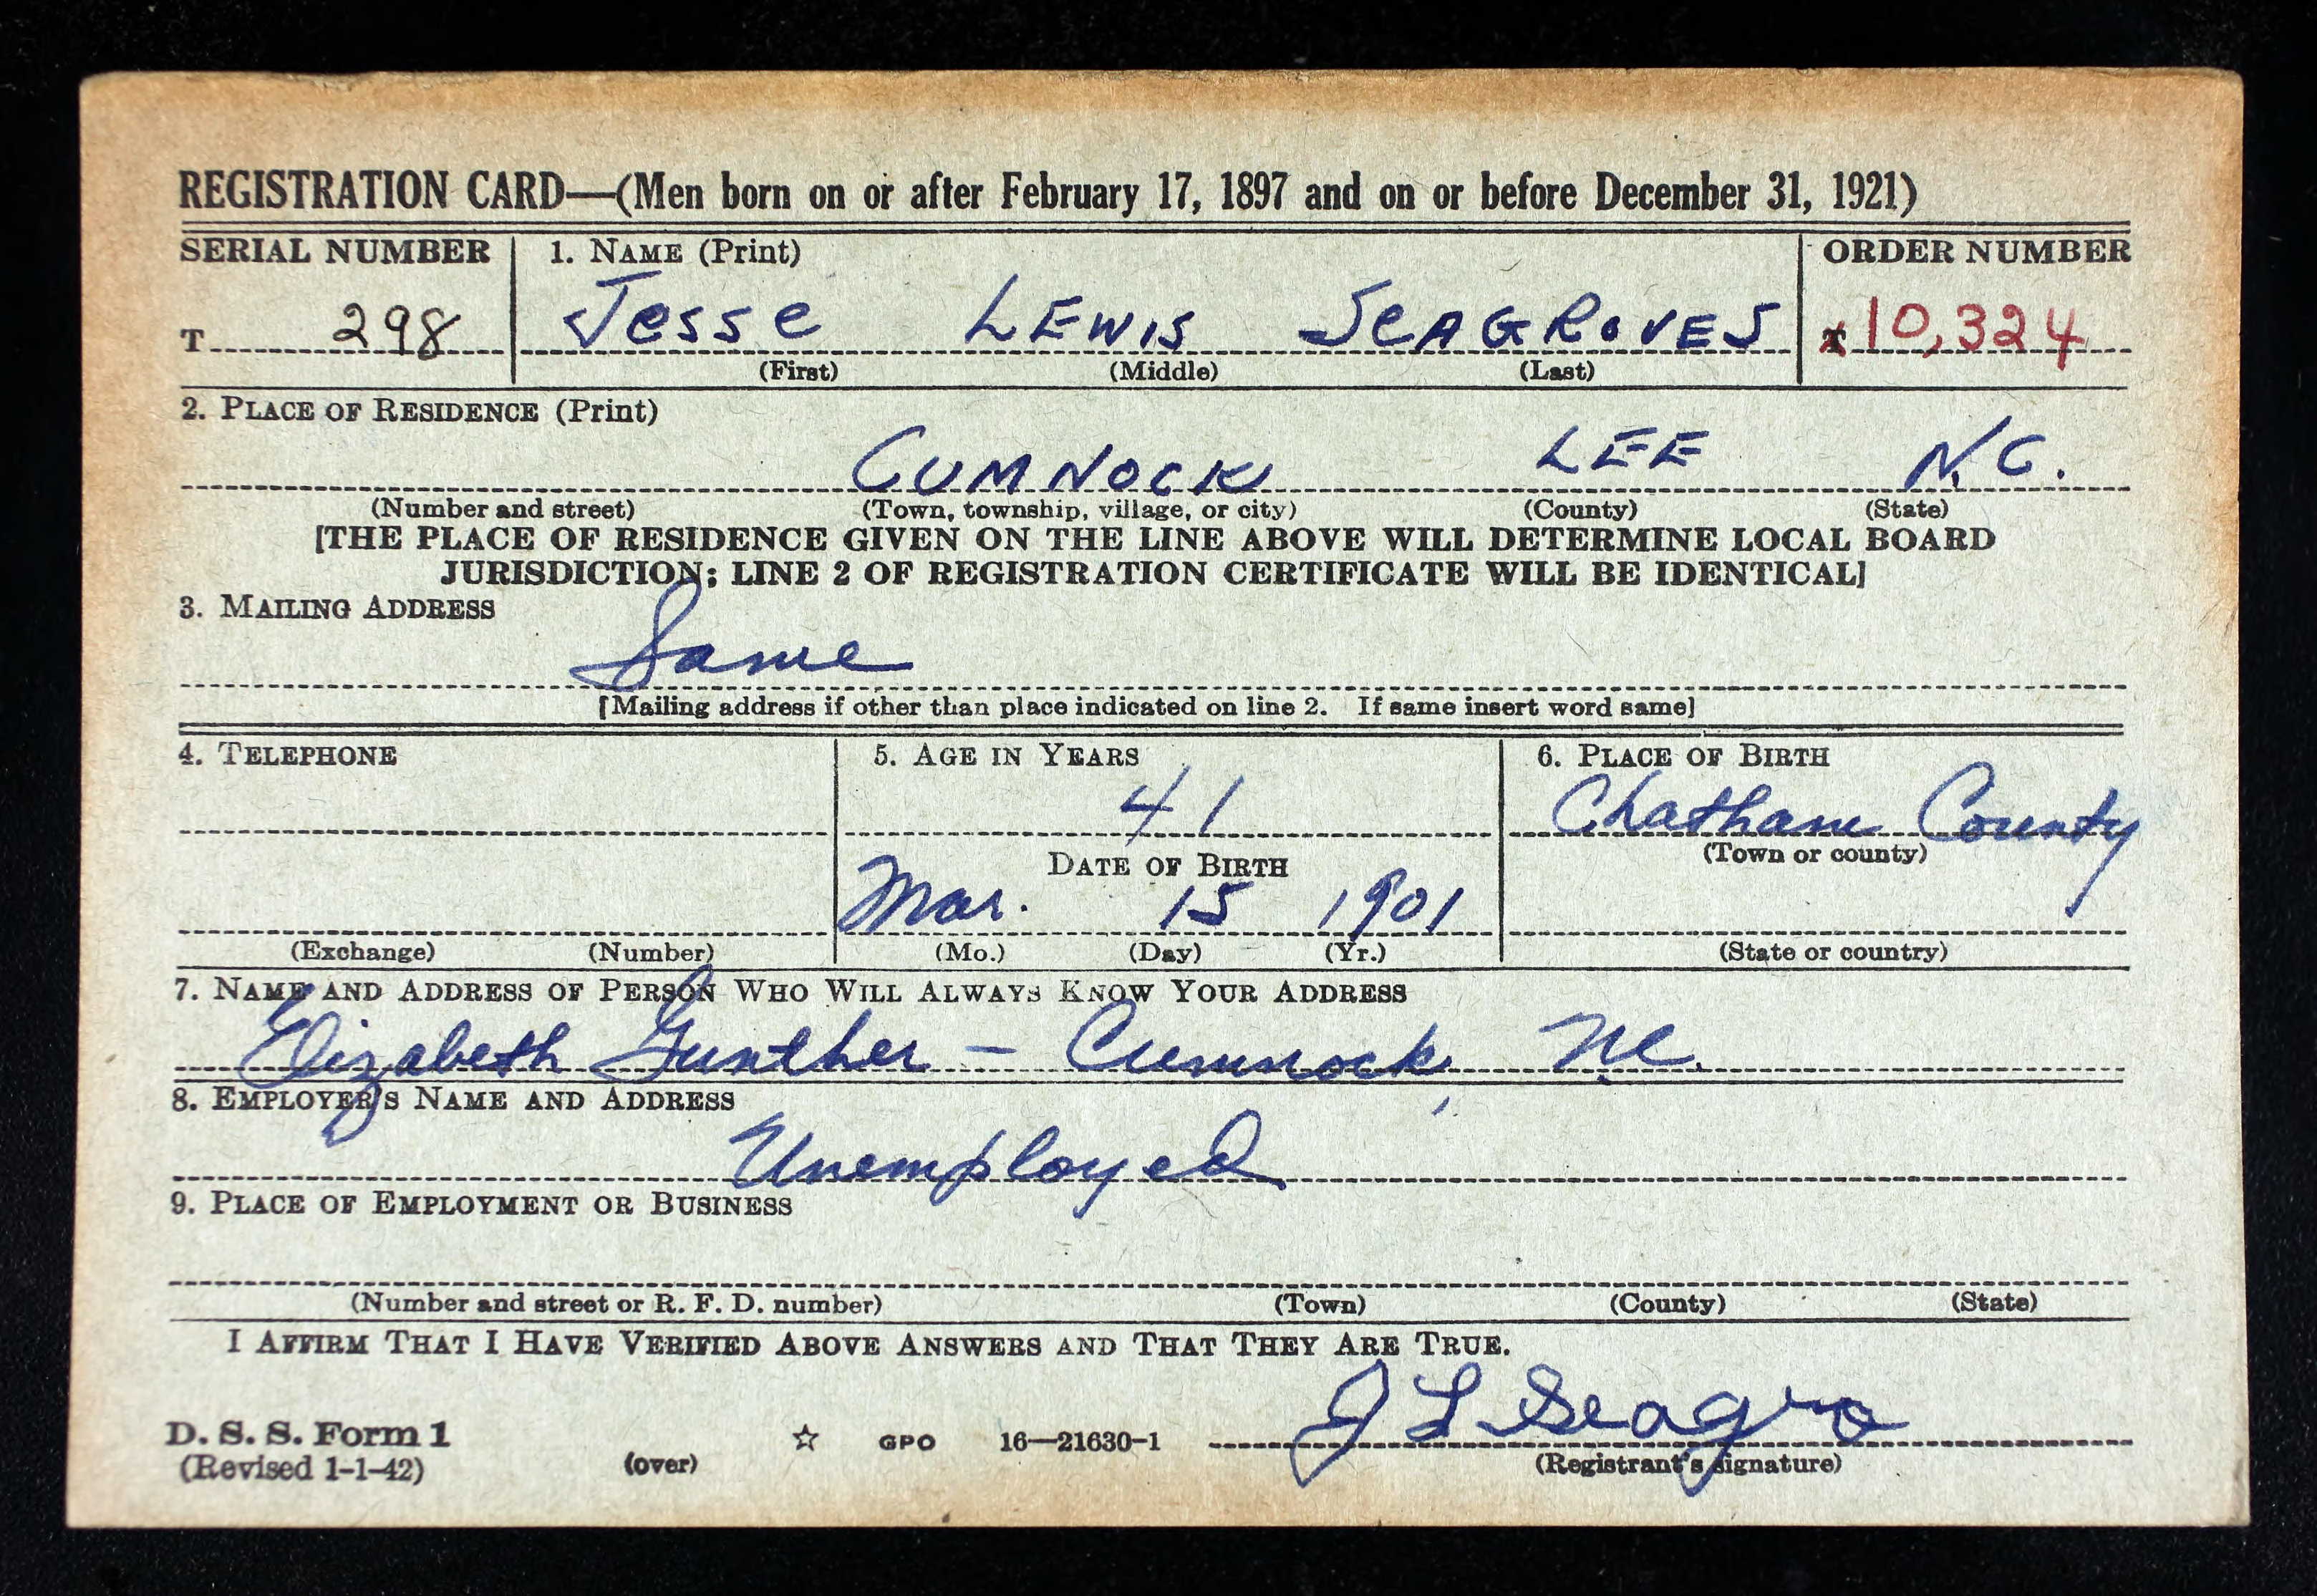 REGISTRATION CARD—(Men born on or after February 17, 1897 and on or before December 31, 1921)
SERIAL NUMBER 1. NAME (Print) ORDER NUMBER
T 298 Jesse LEWIS SEAGROVES T 10,324
(First) (Middle) (Last)
2. PLACE OF RESIDENCE (Print)
CUMNOCK LEE N.C.
(Number and street) (Town, township, village, or city) (County) (State)
[THE PLACE OF RESIDENCE GIVEN ON THE LINE ABOVE WILL DETERMINE LOCAL BOARD
JURISDICTION; LINE 2 OF REGISTRATION CERTIFICATE WILL BE IDENTICAL]
3. MAILING ADDRESS
Same
[Mailing address if other than place indicated on line 2. If same insert word same]
4. TELEPHONE 5. AGE IN YEARS 6. PLACE OF BIRTH
41 Chatham County
DATE OF BIRTH (Town or county)
Mar. 15 1901
(Exchange) (Number) (Mo.) (Day) (Yr.) (State or country)
7. NAME AND ADDRESS OF PERSON WHO WILL ALWAYS KNOW YOUR ADDRESS
Elizabeth Gunther – Cumnock, NC.
8. EMPLOYER'S NAME AND ADDRESS
Unemployed
9. PLACE OF EMPLOYMENT OR BUSINESS
(Number and street or R. F. D. number) (Town) (County) (State)
I AFFIRM THAT I HAVE VERIFIED ABOVE ANSWERS AND THAT THEY ARE TRUE.
J L Seagro
D. S. S. Form 1 ☆ GPO 16—21630-1
(Revised 1-1-42) (over) (Registrant's signature)